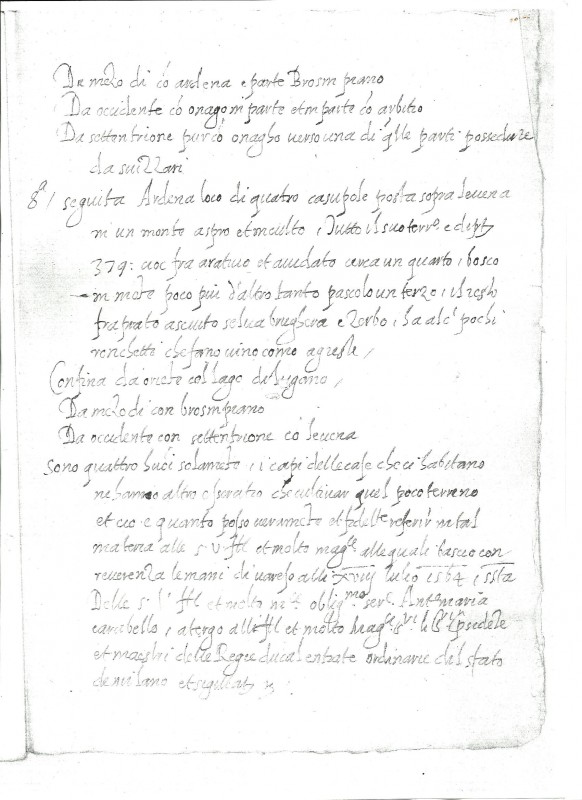 Da mezo di cō ardena e parte Brosimpiano
Da occidente cō onago in parte et in parte cō arbitio
Da settentrione pur cō onagho verso una di q̄lle parti possedute
da suizzari
8ª / seguita Ardena loco di quatro casupole posta sopra levena
in un monte aspro et inculto, Tutto il suo terr.º e de ptz
379: cioe fra arativo et avidato circa un quarto, bosco
in mezo poco piu d'altro tanto pascolo un terzo, il resto
fra prato asciuto selva brughera e zerbo, ha alc̄ pochi
ronchetti che fano vino como agreste /
Confina da oriēte col lago di lugano /
Da mezo di con brosimpiano
Da occidente con settentrione cō levena
Sono quattro huoī solamēte, i capi delle case che ci habitano
ne hanno altro esercitio che cultivar quel poco terreno
et cio e quanto posso veramēte et fedelte referir in tal
materia alle S. V. Ill et molto mag.ce alle quali bascio con
reverenza le mani di varese alli XViij lulio 1564, ssta
Delle S. V. Ill et molto obligmo serv. Antº maria
carabello, a tergo alli Ill et molto Mag.ci S.ri
et maestri delle Regie ducal entrate ordinarie dil stato
de milano et sigillatz